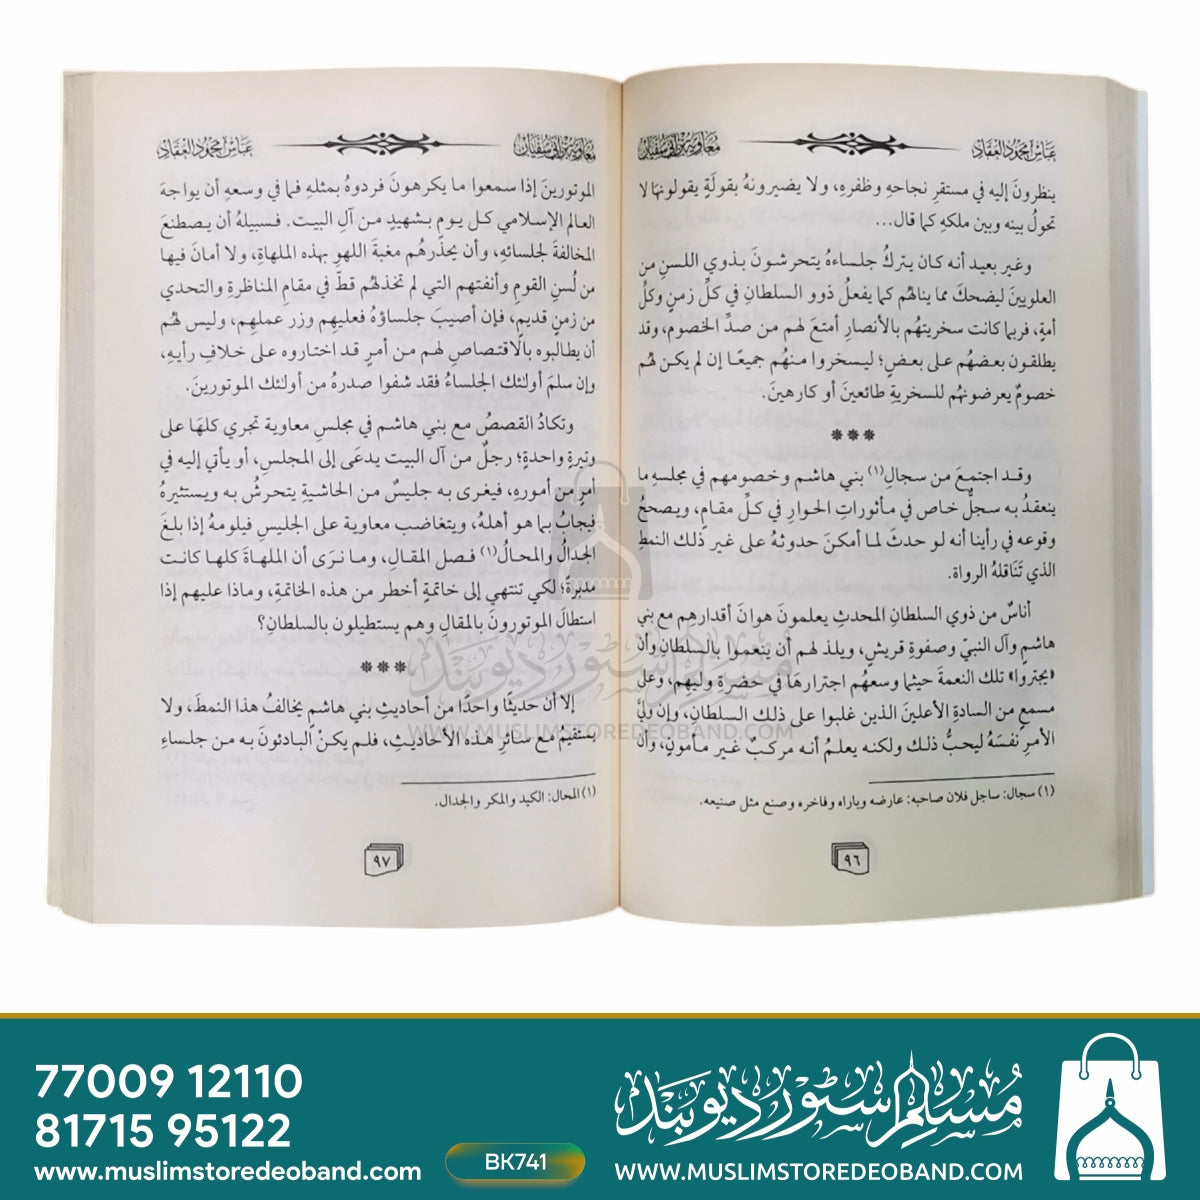 عباس محمود العقاد
معاوية بن أبي سفيان
ينظرونَ إليه في مستقرِ نجاحهِ وظفرهِ، ولا يضيرونهُ بقولَةٍ يقولونها لا
تحولُ بينه وبين ملكهِ كما قال...
وغير بعيد أنه كان يتركُ جلساءهُ يتحرشونَ بذوي اللسنِ من
العلويينَ ليضحكَ مما ينالهُم كما يفعلُ ذوو السلطانِ في كلِّ زمنٍ وكلِّ
أمةٍ، فربما كانت سخريتهُم بالأنصارِ أمتعَ لهم من صدِّ الخصومِ، وقد
يطلقون بعضهُم على بعضٍ؛ ليسخروا منهُم جميعًا إن لم يكن لهُم
خصومٌ يعرضونهُم للسخريةِ طائعينَ أو كارهينَ.
***
وقد اجتمعَ من سجالِ(١) بني هاشم وخصومهم في مجلسهِ ما
ينعقدُ به سجلٌّ خاص في مأثوراتِ الحوارِ في كلِّ مقامٍ، ويصححُ
وقوعه في رأينا أنه لو حدثَ لما أمكنَ حدوثهُ على غير ذلك النمطِ
الذي تَناقلهُ الرواة.
أناسٌ من ذوي السلطانِ المحدثِ يعلمونَ هوانَ أقدارهِم مع بني
هاشمٍ وآل النبيِّ وصفوةِ قريشٍ، ويلذ لهم أن ينعموا بالسلطانِ وأن
«يجتروا» تلك النعمةَ حيثما وسعهُم اجترارهَا في حضرةِ وليهِم، وعلى
مسمعٍ من السادةِ الأعلينَ الذين غلبوا على ذلك السلطانِ، وإن وليَّ
الأمرِ نفسَهُ ليحبُّ ذلك ولكنه يعلمُ أنه مركبٌ غير مأمونٍ، وأن
(١) سجال: ساجل فلان صاحبه: عارضه وباراه وفاخره وصنع مثل صنيعه.
٩٦
عباس محمود العقاد
معاوية بن أبي سفيان
الموتورينَ إذا سمعوا ما يكرهونَ فردوهُ بمثلهِ فما في وسعهِ أن يواجهَ
العالم الإسلامي كل يومٍ بشهيدٍ من آلِ البيت. فسبيلهُ أن يصطنعَ
المخالفةَ لجلسائهِ، وأن يحذرهُم مغبةَ اللهوِ بهذه الملهاةِ، ولا أمانَ فيها
من لُسنِ القومِ وأنفتهم التي لم تخذلهُم قطّ في مقامِ المناظرةِ والتحدي
من زمنٍ قديمٍ، فإن أصيبَ جلساؤهُ فعليهِم وزر عملهِم، وليس لهُم
أن يطالبوه بالاقتصاصِ لهم من أمرٍ قد اختاروه على خلافِ رأيهِ،
وإن سلمَ أولئك الجلساءُ فقد شفوا صدرهُ من أولئك الموتورينَ.
وتكادُ القصصُ مع بني هاشم في مجلسِ معاوية تجري كلها على
وتيرةٍ واحدةٍ؛ رجلٌ من آل البيت يدعَى إلى المجلسِ، أو يأتي إليه في
أمرٍ من أمورهِ، فيغرى به جليسٌ من الحاشيةِ يتحرشُ به ويستثيرهُ
فيجابُ بما هو أهلهُ، ويتغاضب معاوية على الجليسِ فيلومهُ إذا بلغَ
الجدالُ والمحالُ(١) فصل المقالِ، وما نرَى أن الملهاةَ كلها كانت
مدبرةً؛ لكي تنتهي إلى خاتمةٍ أخطر من هذه الخاتمةِ، وماذا عليهم إذا
استطالَ الموتورونَ بالمقالِ وهم يستطيلون بالسلطانِ؟
***
إلا أن حديثًا واحدًا من أحاديثِ بني هاشمٍ يخالفُ هذا النمطَ، ولا
يستقيمُ مع سائرِ هذه الأحاديثِ، فلم يكنْ البادئونَ به من جلساءِ
(١) المحال: الكيد والمكر والجدال.
٩٧
مسلم سٹور دیوبند
WWW.MUSLIMSTOREDEOBAND.COM
77009 12110
81715 95122
www.muslimstoredeoband.com
BK741
مسلم سٹور دیوبند
WWW.MUSLIMSTOREDEOBAND.COM